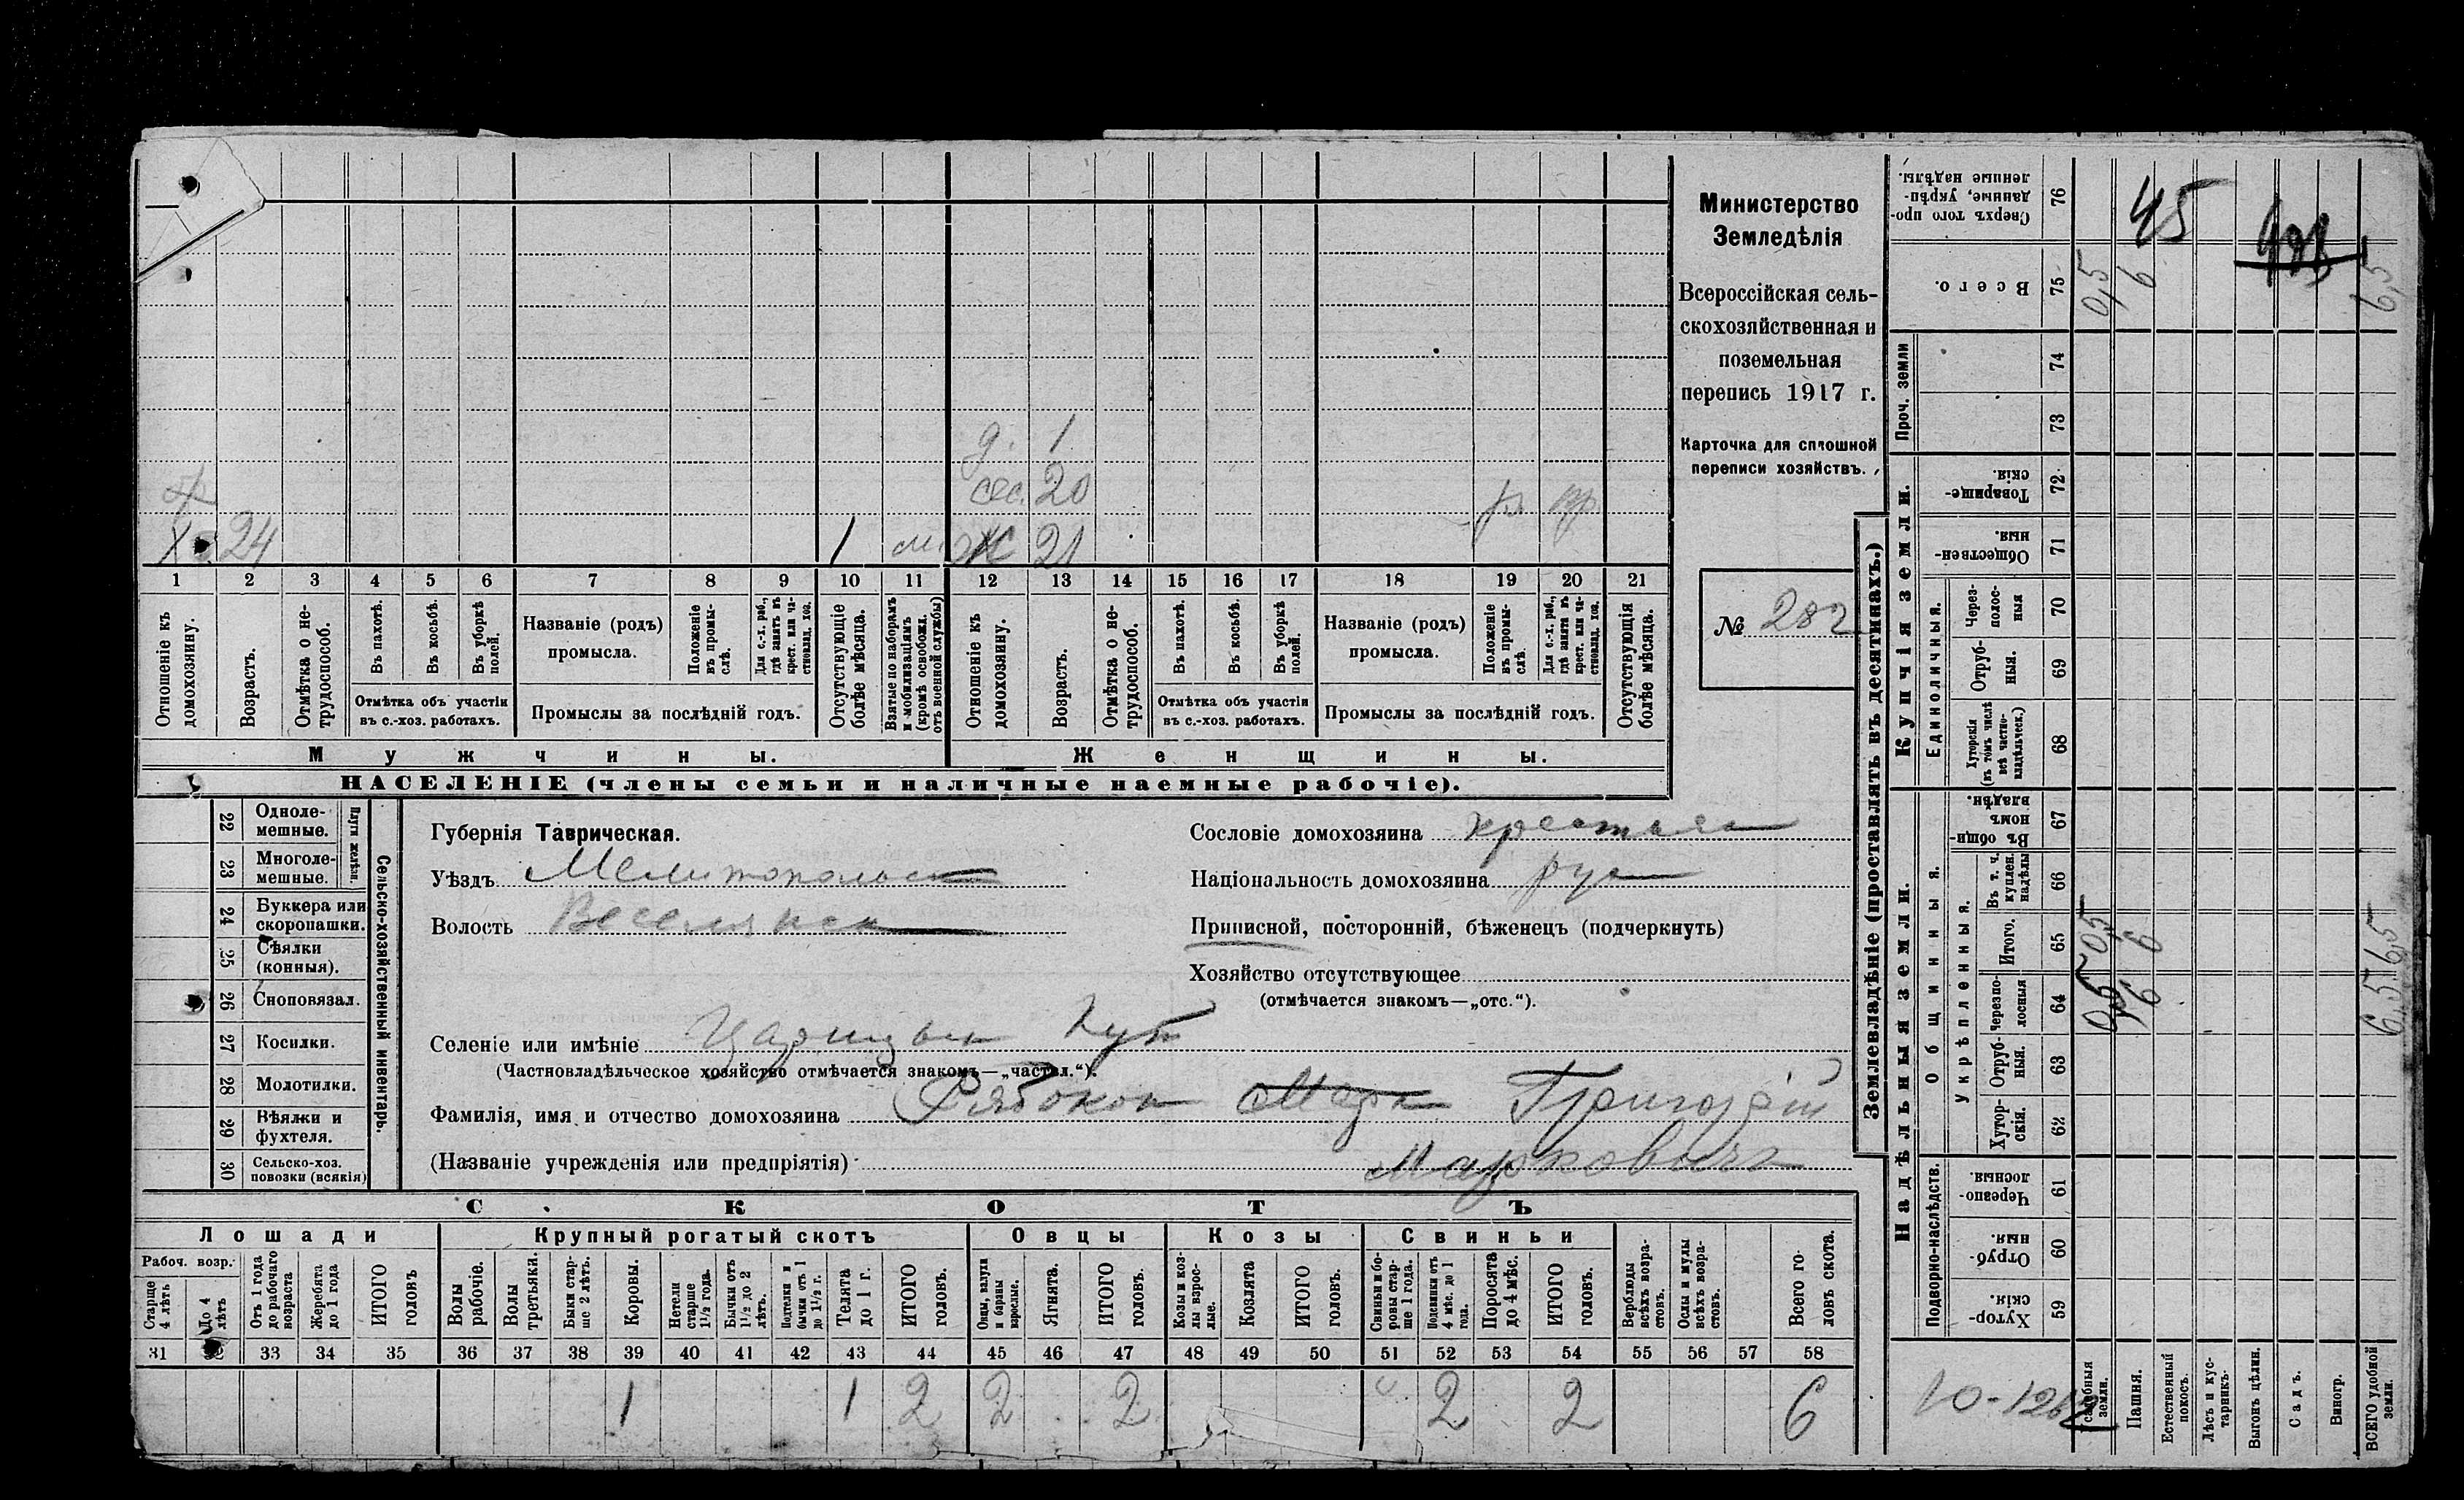 Министерство
Земледѣлія
Всероссійская сель-
скохозяйственная и
поземельная
перепись 1917 г.
Карточка для сплошной
переписи хозяйствъ.
№ 282
д. 1
сес. 20
Х. 24 1 Ж 21
1 2 3 4 5 6 7 8 9 10 11 12 13 14 15 16 17 18 19 20 21
Отношеніе къ домохозяину.
Возрастъ.
Отмѣтка о не-трудоспособ.
Въ пахотѣ.
Въ косьбѣ.
Въ уборкѣ полей.
Отмѣтка объ участіи
въ с.-хоз. работахъ.
Названіе (родъ)
промысла.
Положеніе въ промы-слѣ.
Для с.-х. раб., гдѣ занятъ въ крест. или ча-стновлад. хоз.
Промыслы за послѣдній годъ.
Отсутствующіе болѣе мѣсяца.
Взятые по наборамъ и мобилизаціямъ (кромѣ освобожд. отъ военной службы)
Отношеніе къ домохозяину.
Возрастъ.
Отмѣтка о не-трудоспособ.
Въ пахотѣ.
Въ косьбѣ.
Въ уборкѣ полей.
Отмѣтка объ участіи
въ с.-хоз. работахъ.
Названіе (родъ)
промысла.
Положеніе въ промы-слѣ.
Для с.-х. раб., гдѣ занята въ крест. или ча-стновлад. хоз.
Промыслы за послѣдній годъ.
Отсутствующія болѣе мѣсяца.
Мужчины. Женщины.
НАСЕЛЕНІЕ (члены семьи и наличные наемные рабочіе).
22 Одноле-мешные.
23 Многоле-мешные.
Плуги желѣзн.
24 Буккера или скоропашки.
25 Сѣялки (конныя).
26 Сноповязал.
27 Косилки.
28 Молотилки.
29 Вѣялки и фухтеля.
30 Сельско-хоз. повозки (всякія)
Сельско-хозяйственный инвентарь.
Губернія Таврическая.
Уѣздъ Мелитопольск
Волость Веселянск
Сословіе домохозяина крестьян
Національность домохозяина рус
Приписной, посторонній, бѣженецъ (подчеркнуть)
Хозяйство отсутствующее
(отмѣчается знакомъ—„отс.“).
Селеніе или имѣніе Царицын Кут
(Частновладѣльческое хозяйство отмѣчается знакомъ—„частвл.“).
Фамилія, имя и отчество домохозяина Рябокон Марк Григорій
(Названіе учрежденія или предпріятія) Маркович
СКОТЪ
Лошади Крупный рогатый скотъ Овцы Козы Свиньи
Рабоч. возр.
Старше 4 лѣтъ
До 4 лѣтъ
Отъ 1 года до рабочаго возраста
Жеребята до 1 года
ИТОГО головъ
Волы рабочіе.
Волы третьяки.
Быки стар-ше 2 лѣтъ.
Коровы.
Нетели старше 1½ года.
Бычки отъ 1½ до 2 лѣтъ.
Подтелки и бычки отъ 1 до 1½ г.
Телята до 1 г.
ИТОГО головъ.
Овцы, валухи и бараны взрослые.
Ягнята.
ИТОГО головъ.
Козы и коз-лы взрос-лые.
Козлята
ИТОГО головъ.
Свиньи и бо-ровы стар-ше 1 года.
Подсвинки отъ 4 мѣс. до 1 года.
Поросята до 4 мѣс.
ИТОГО головъ.
Верблюды всѣхъ возра-стовъ.
Ослы и мулы всѣхъ возра-стовъ.
Всего го-ловъ скота.
31 32 33 34 35 36 37 38 39 40 41 42 43 44 45 46 47 48 49 50 51 52 53 54 55 56 57 58
1 1 2 2 2 2 2 6
Землевладѣніе (проставлять въ десятинахъ.)
Надѣльныя земли. Купчія земли. Проч. земли
Подворно-наслѣдств.
Общинныя.
Укрѣпленныя.
Единоличныя.
Сверхъ того про-данные, укрѣп-ленные надѣлы. 76
Всего. 75
74
73
Товарище-скія 72
Обществен-ныя. 71
Через-полос-ныя 70
Отруб-ныя. 69
Хуторскія (въ томъ числѣ всѣ частно-владѣльческ.) 68
Въ общин-номъ владѣн. 67
Въ т. ч. куплен. надѣлы 66
Итого. 65
Черезпо-лосныя 64
Отруб-ныя. 63
Хутор-скія. 62
Черезпо-лосныя 61
Отруб-ныя. 60
Хутор-скія. 59
Усадебныя земли.
Пашня.
Естественный покосъ.
Лѣсъ и кус-тарникъ.
Выгонъ цѣлин.
Садъ.
Виногр.
ВСЕГО удобной земли.
45
0,5 6 6,5
0,5 6 6,5
0,5 6 6,5